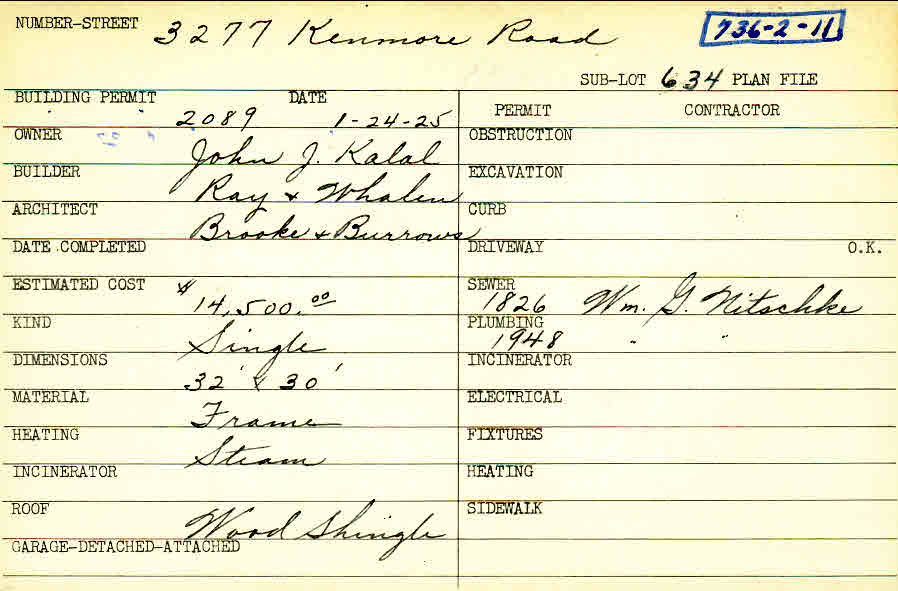 NUMBER-STREET 3277 Kenmore Road 736-2-11
SUB-LOT 634 PLAN FILE
BUILDING PERMIT DATE PERMIT CONTRACTOR
2089 1-24-25
OWNER John J. Kalal OBSTRUCTION
BUILDER Ray & Whalen EXCAVATION
ARCHITECT Brooke & Burrows CURB
DATE COMPLETED DRIVEWAY O.K.
ESTIMATED COST $14,500.00 SEWER 1826 Wm. G. Nitschke
KIND Single PLUMBING 1948 " "
DIMENSIONS 32' x 30' INCINERATOR
MATERIAL Frame ELECTRICAL
HEATING Steam FIXTURES
INCINERATOR HEATING
ROOF Wood Shingle SIDEWALK
GARAGE-DETACHED-ATTACHED